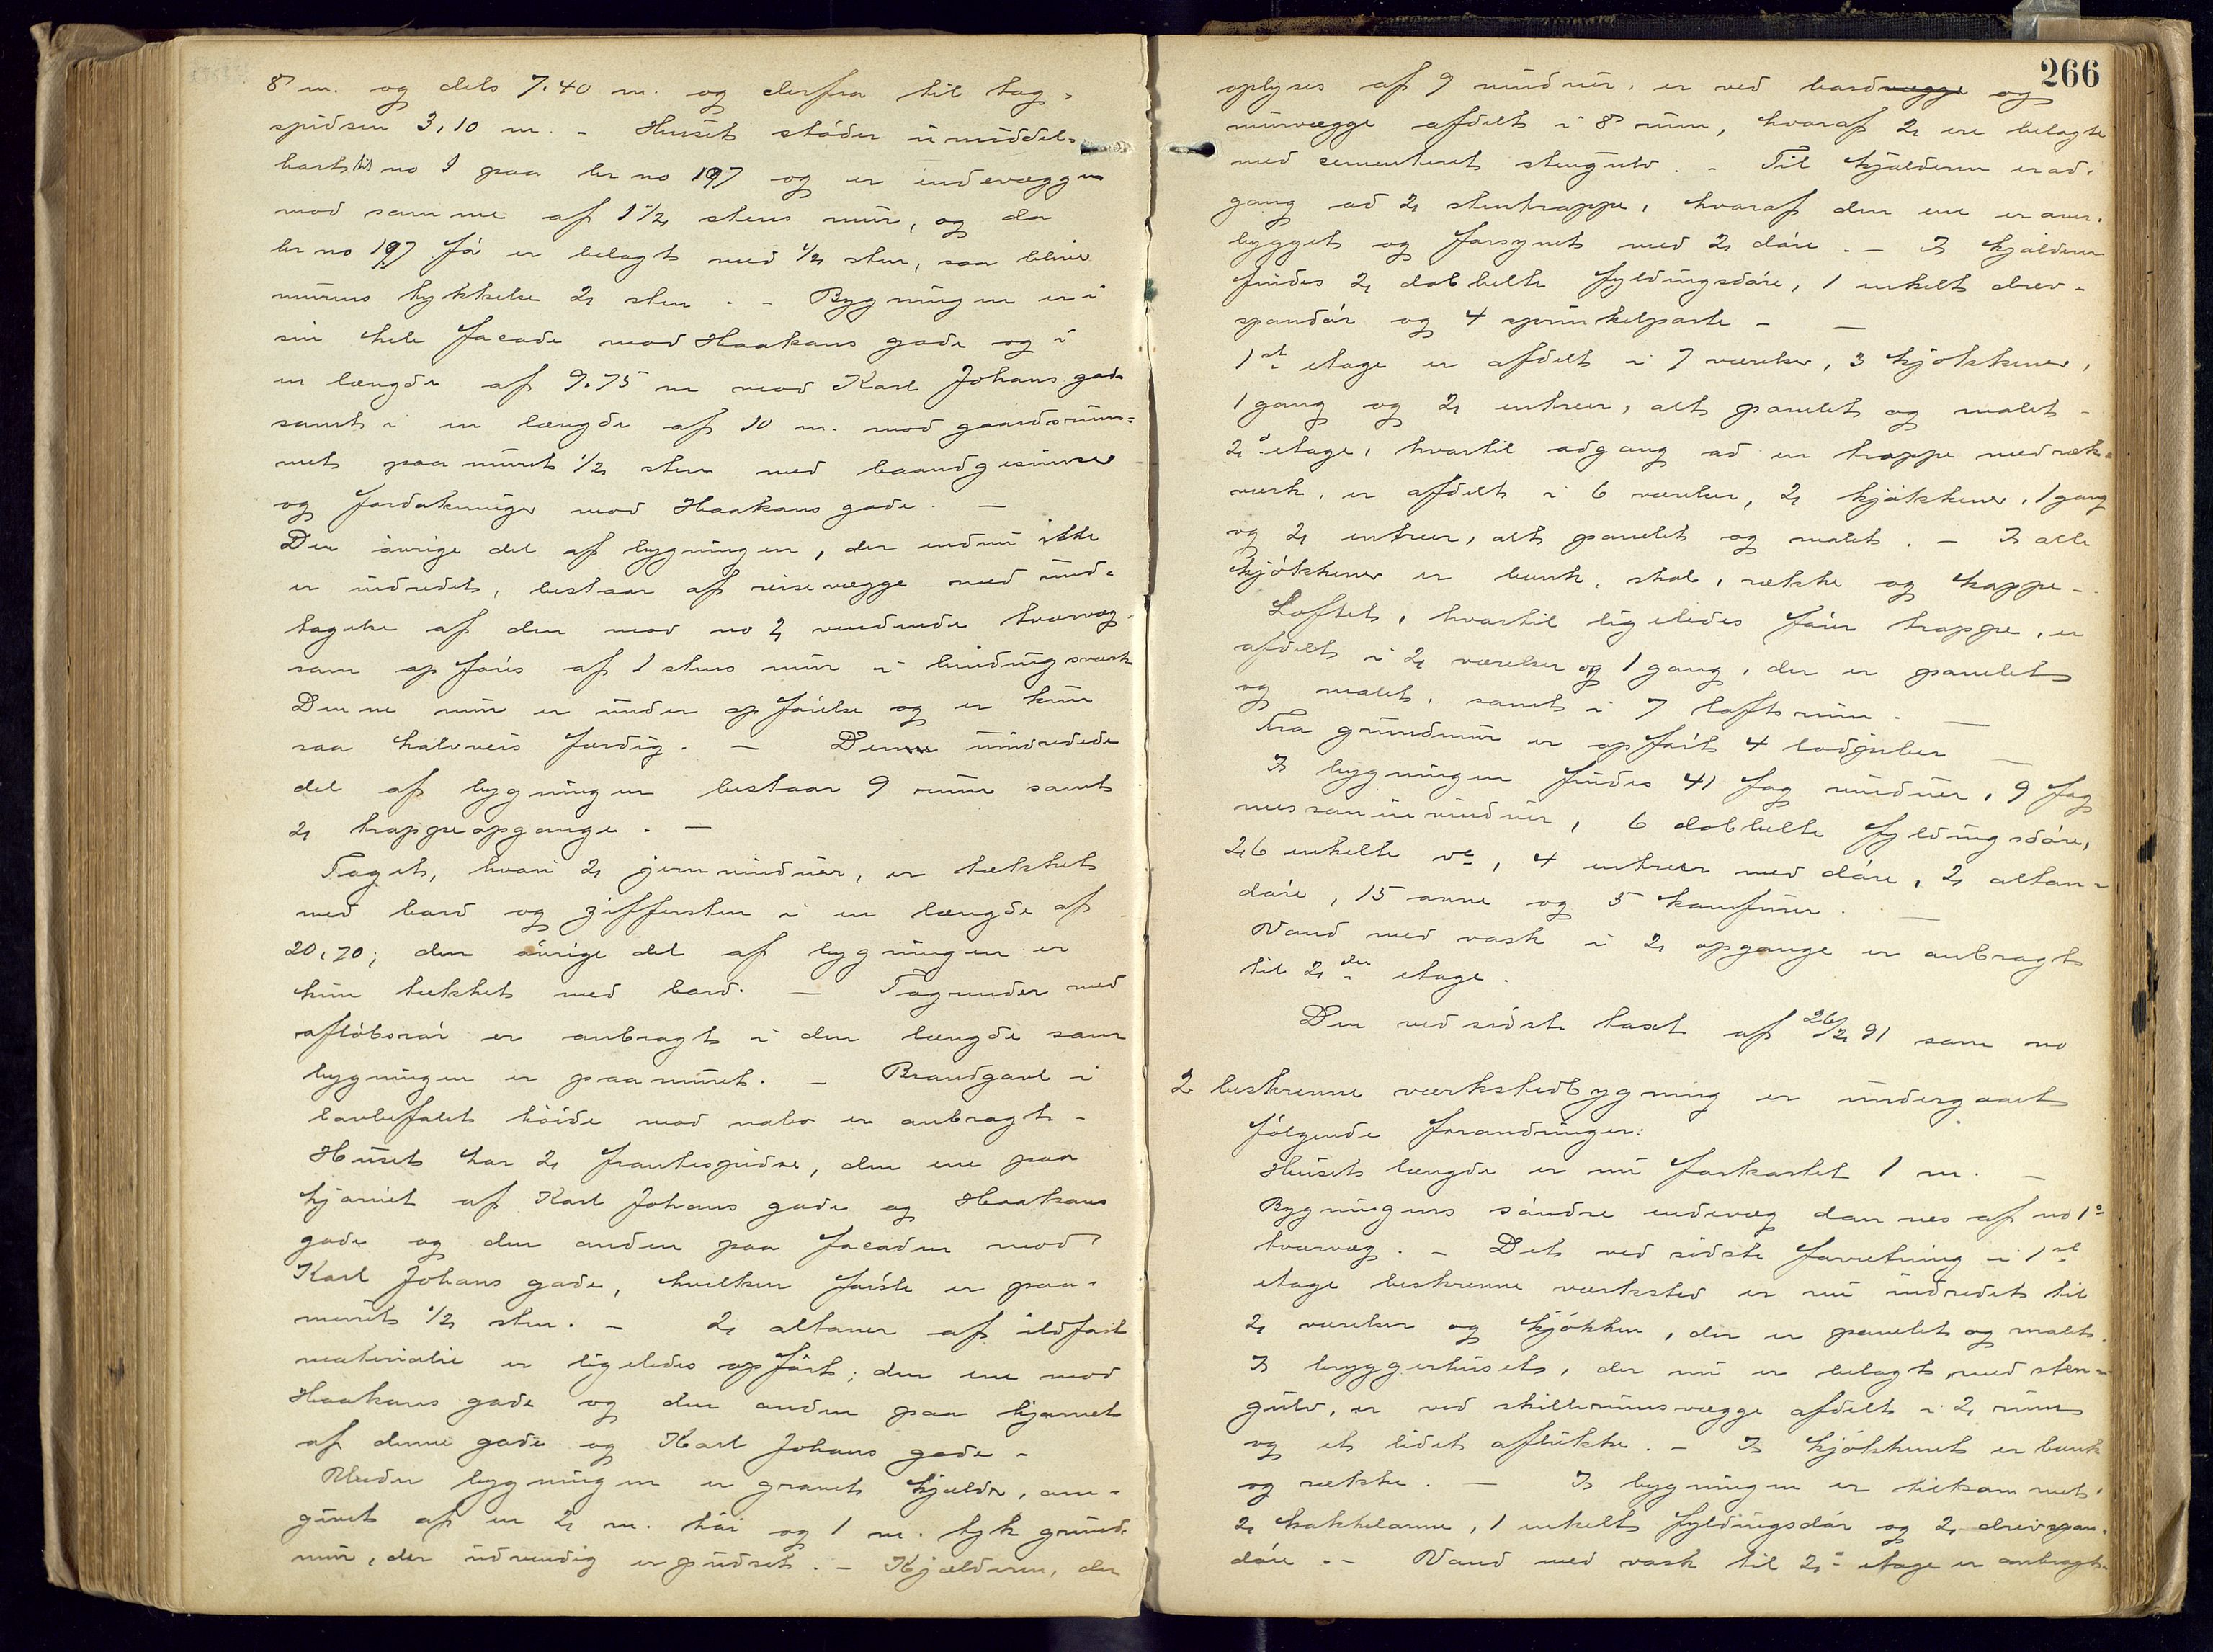 8 m. og dels 7.40 m. og derfra til tag-
spidsen 3,10 m. - Huset støder umiddel-
bart til no 1 paa br no 197 og er endevæggen
mod samme af 1 1/2 stens mur, og da
br no 197 før er belagt med 1/2 sten, saa bliver
murens tykkelse 2 sten. - Bygningen er i
sin hele facade mod Haakons gade og i
en længde af 9.75 m mod Karl Johans gade
samt i en længde af 10 m. mod gaardsrum-
met paamuret 1/2 sten med baandgesimser
og fordakninger mod Haakons gade. -
Den øvrige del af bygningen, der endnu ikke
er indredet, bestaar af reisevægge med und-
tagelse af den mod no 2 vendende tvervæg
som opføres af 1 stens mur i bindingsværk
Denne mur er under opførelse og er kun
saa halvveis færdig. - Denne uindredede
del af bygningen bestaar 9 rum samt
2 trappeopgange. -
Taget, hvori 2 jernvinduer, er tækket
med bord og ziffersten i en længde af
20,70; den øvrige del af bygningen er
kun tækket med bord. - Tagrender med
afløbsrør er anbragt i den længde som
bygningen er paamuret. - Brandgavl i
lovbefalet høide mod nabo er anbragt -
Huset har 2 frontespidse, den ene paa
hjørnet af Karl Johans gade og Haakons
gade og den anden paa facaden mod
Karl Johans gade, hvilken første er paa-
muret 1/2 sten. - 2 altaner af ildfast
materialie er ligeledes opført; den ene mod
Haakons gade og den anden paa hjørnet
af denne gade og Karl Johans gade -
Under bygningen er gravet kjelder, om-
givet af en 2 m. høi og 1 m. tyk grund-
mur, der udvendig er pudset. - Kjælderen, der
266
oplyses af 9 vinduer, er ved bordvægge og
murvægge afdelt i 8 rum, hvoraf 2 ere belagte
med cementeret stengulv. - Til kjælderen er ad-
gang ad 2 stentrappe, hvoraf den ene er over-
bygget og forsynet med 2 døre. - I kjælderen
findes 2 dobbelte fyldingsdøre, 1 enkelt drev-
spandør og 4 sprinkelporte - -
1ste etage er afdelt i 7 værelser, 3 kjøkkener,
1 gang og 2 entreer, alt panelet og malet -
2d etage, hvortil adgang ad en trappe med ræk-
værk, er afdelt i 6 værelser, 2 kjøkkener, 1 gang
og 2 entreer, alt panelet og malet. - I alle
kjøkkener er bænk, skab, række og kappe -
Loftet, hvortil ligeledes fører trappe, er
afdelt i 2 værelser og 1 gang, der er panelet
og malet, samt i 7 loftsrum. -
Fra grundmur er opført 4 lodpiber -
I bygningen findes 41 fag vinduer, 9 fag
messaninvinduer, 6 dobbelte fyldingsdøre,
26 enkelte do, 4 entreer med døre, 2 altan-
døre, 15 ovne og 5 komfurer. -
Vand med vask i 2 opgange er anbragt
til 2den etage.
Den ved sidste taxt af 26/2 91 som no
2 beskrevne værkstedbygning er undergaaet
følgende forandringer:
Husets længde er nu forkortet 1 m. -
Bygningens søndre endevæg dannes af no 1s
tvervæg. - Det ved sidste forretning i 1ste
etage beskrevne værksted er nu indredet til
2 værelser og kjøkken, der er panelet og malet.
I bryggerhuset, der nu er belagt med sten-
gulv, er ved skillerumsvægge afdelt i 2 rum
og et lidet aflukke. - I kjøkkenet er bænk
og række. - I bygningen er tilkommet
2 kakkelovne, 1 enkelt fyldingsdør og 2 drevspan-
døre. - Vand med vask til 2d etage er anbragt.